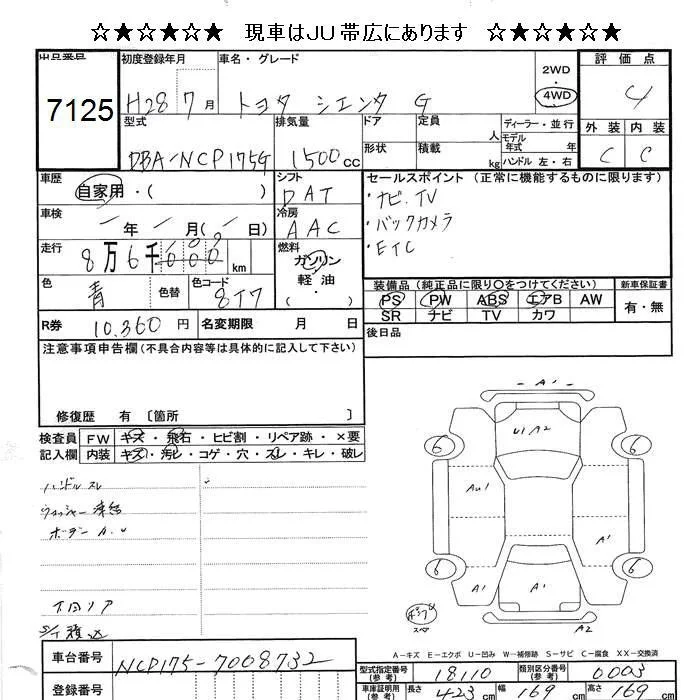 ☆★☆★☆★☆ 現車はJU帯広にあります ☆★☆★☆★☆
出品番号 初度登録年月 車名・グレード 2WD 評価点
7125 H28 7月 トヨタ シエンタ G 4WD 4
型式 排気量 ドア 定員 人 ディーラー・並行 外装 内装
DBA-NCP175G 1500cc 形状 積載 kg モデル年式 年 ハンドル 左・右 C C
車歴 自家用・( ) シフト DAT セールスポイント (正常に機能するものに限ります)
車検 - 年 - 月( - 日) 冷房 AAC ・ナビ.TV
・バックカメラ
・ETC
走行 8万6千000km 燃料 ガソリン 軽油
色 青 色替 色コード 8T7 装備品(純正品に限り○をつけてください) 新車保証書
PS PW ABS エアB AW 有・無
SR ナビ TV カワ
R券 10,360円 名変期限 月 日 後日品
注意事項申告欄(不具合内容等は具体的に記入して下さい)
修復歴 有 〔箇所 〕
検査員 FW キズ・飛石・ヒビ割・リペア跡・×要
記入欄 内装 キズ・汚レ・コゲ・穴・スレ・キレ・破レ
ハンドルスレ
ウォッシャー凍結
ボデーA.U
下回リア
S/T積込
A1
U1 A2
6 6
AU1 A1
6 6
A1 A1 A1
スペア
A2
A-キズ E-エクボ U-凹み W-補修跡 S-サビ C-腐食 XX-交換済
車台番号 NCP175-7008732 型式指定番号(参考) 18110 類別区分番号(参考) 0003
登録番号 車庫証明用(参考) 長さ 423cm 幅 169cm 高さ 169cm